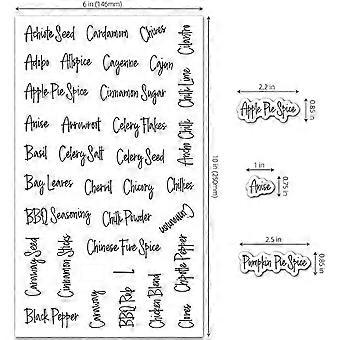 6 in (146mm)
Achiote Seed Cardamom Chives Cilantro
Adobo Allspice Cayenne Cajun
Apple Pie Spice Cinnamon Sugar Chili Lime
Anise Arrowroot Celery Flakes
Basil Celery Salt Celery Seed Ancho Chili
Bay Leaves Chervil Chicory Chilies
BBQ Seasoning Chili Powder Cinnamon
Chinese Five Spice
Caraway Seed Cinnamon Sticks Chipotle Pepper
Caraway BBQ Rub Chicken Blend Cloves
Black Pepper
10 in (250mm)
2.2 in
Apple Pie Spice
0.85 in
1 in
Anise
0.75 in
2.5 in
Pumpkin Pie Spice
0.85 in